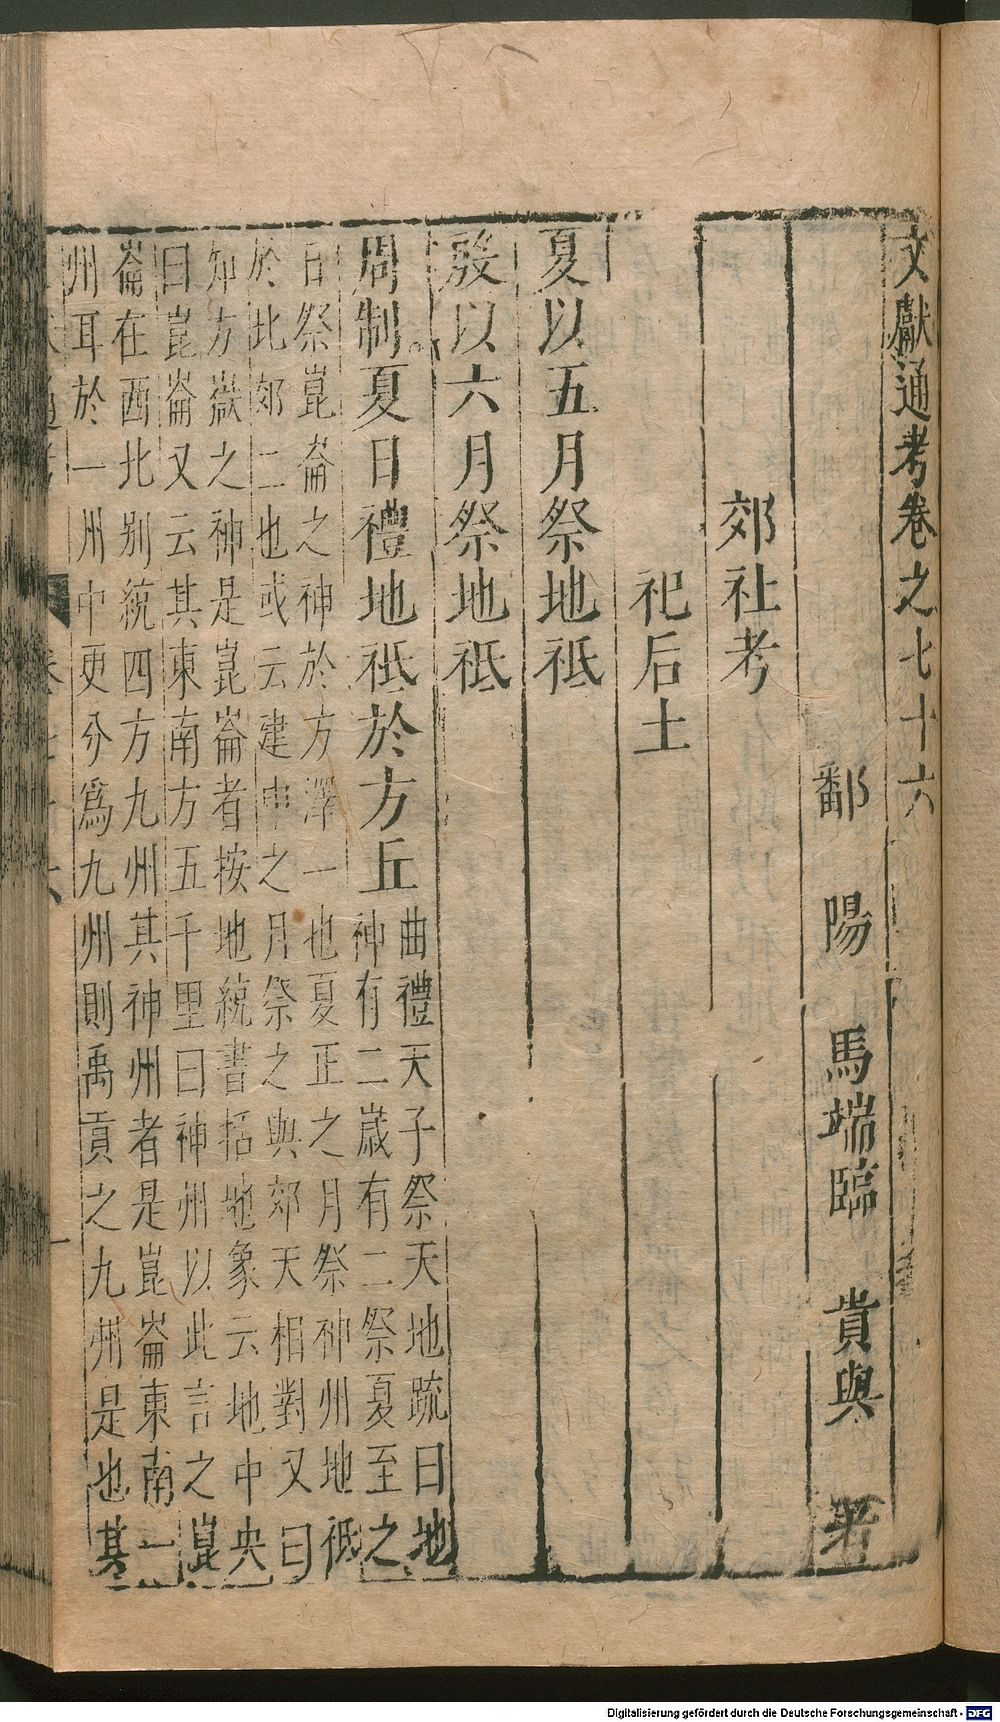 文獻通考卷之七十六
鄱陽馬端臨貴與著
郊社考
祀后土
夏以五月祭地祇
殷以六月祭地祇
周制夏日禮地祇於方丘
曲禮天子祭天地䟽曰地
神有二歲有二祭夏至之
日祭崑崙之神於方澤一也夏正之月祭神州地祇
於此郊二也或云建申之月祭之與郊天相對又曰
知方嶽之神是崑崙者按地統書括地象云地中央
曰崑崙又云其東南方五千里曰神州以此言之崑
崙在西北别統四方九州其神州者是崑崙東南一
州耳於一州中更分爲九州則禹貢之九州是也其
Digitalisierung gefördert durch die Deutsche Forschungsgemeinschaft - DFG